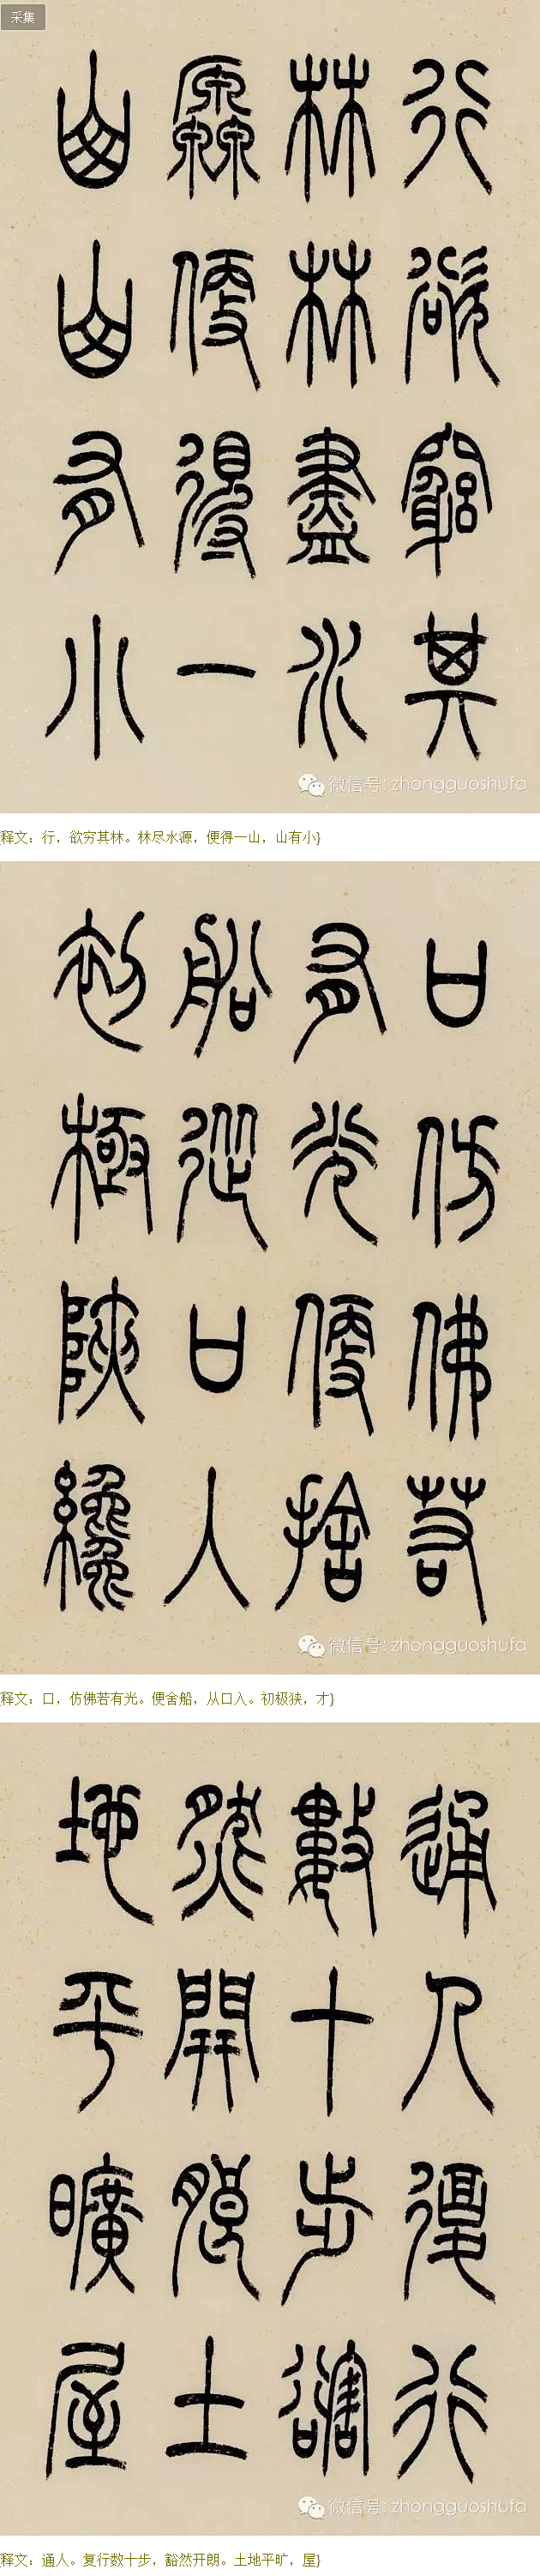 采集
行欲窮其
林林盡水
原便得一
山山有小
微信号: zhongguoshufa
{释文：行，欲穷其林。林尽水源，便得一山，山有小}
口仿佛若
有光便捨
船從口人
初極陜纔
微信号: zhongguoshufa
{释文：口，仿佛若有光。便舍船，从口入。初极狭，才}
通人復行
數十步豁
然開朗土
地平曠屋
微信号: zhongguoshufa
{释文：通人。复行数十步，豁然开朗。土地平旷，屋}